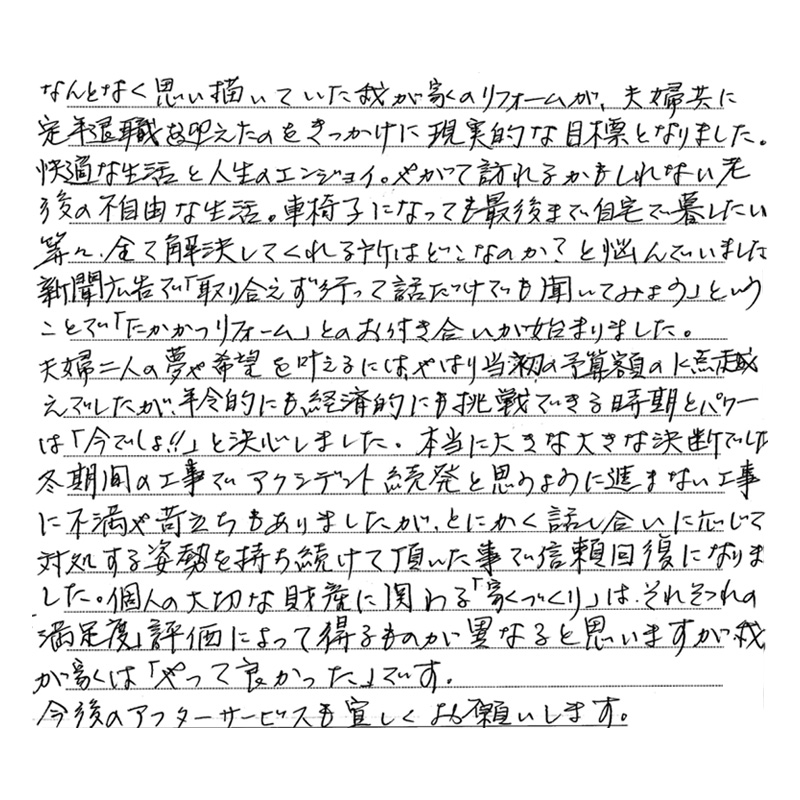 なんとなく思い描いていた我が家のリフォームが、夫婦共に
定年退職を迎えたのをきっかけに現実的な目標となりました。
快適な生活と人生のエンジョイ。やがて訪れるかもしれない老
後の不自由な生活。車椅子になっても最後まで自宅で暮したい
等々、全て解決してくれる所はどこなのか?と悩んでいました
新聞広告で「取り合えず行って話だけでも聞いてみよう」という
ことで「たかかつリフォーム」とのお付き合いが始まりました。
夫婦二人の夢や希望を叶えるには、やはり当初の予算額の 点越
えでしたが、年令的にも経済的にも挑戦できる時期とパワー
は「今でしょ!!」と決心しました。本当に大きな大きな決断でした
冬期間の工事でアクシデント続発と思うように進まない工事
に不満や苛立ちもありましたが、とにかく話し合いに応じて
対処する姿勢を持ち続けて頂いた事で信頼回復になりま
した。個人の大切な財産に関わる「家づくり」は、それぞれの
満足度、評価によって得るものが異なると思いますが我
が家は「やって良かった」です。
今後のアフターサービスも宜しくお願いします。